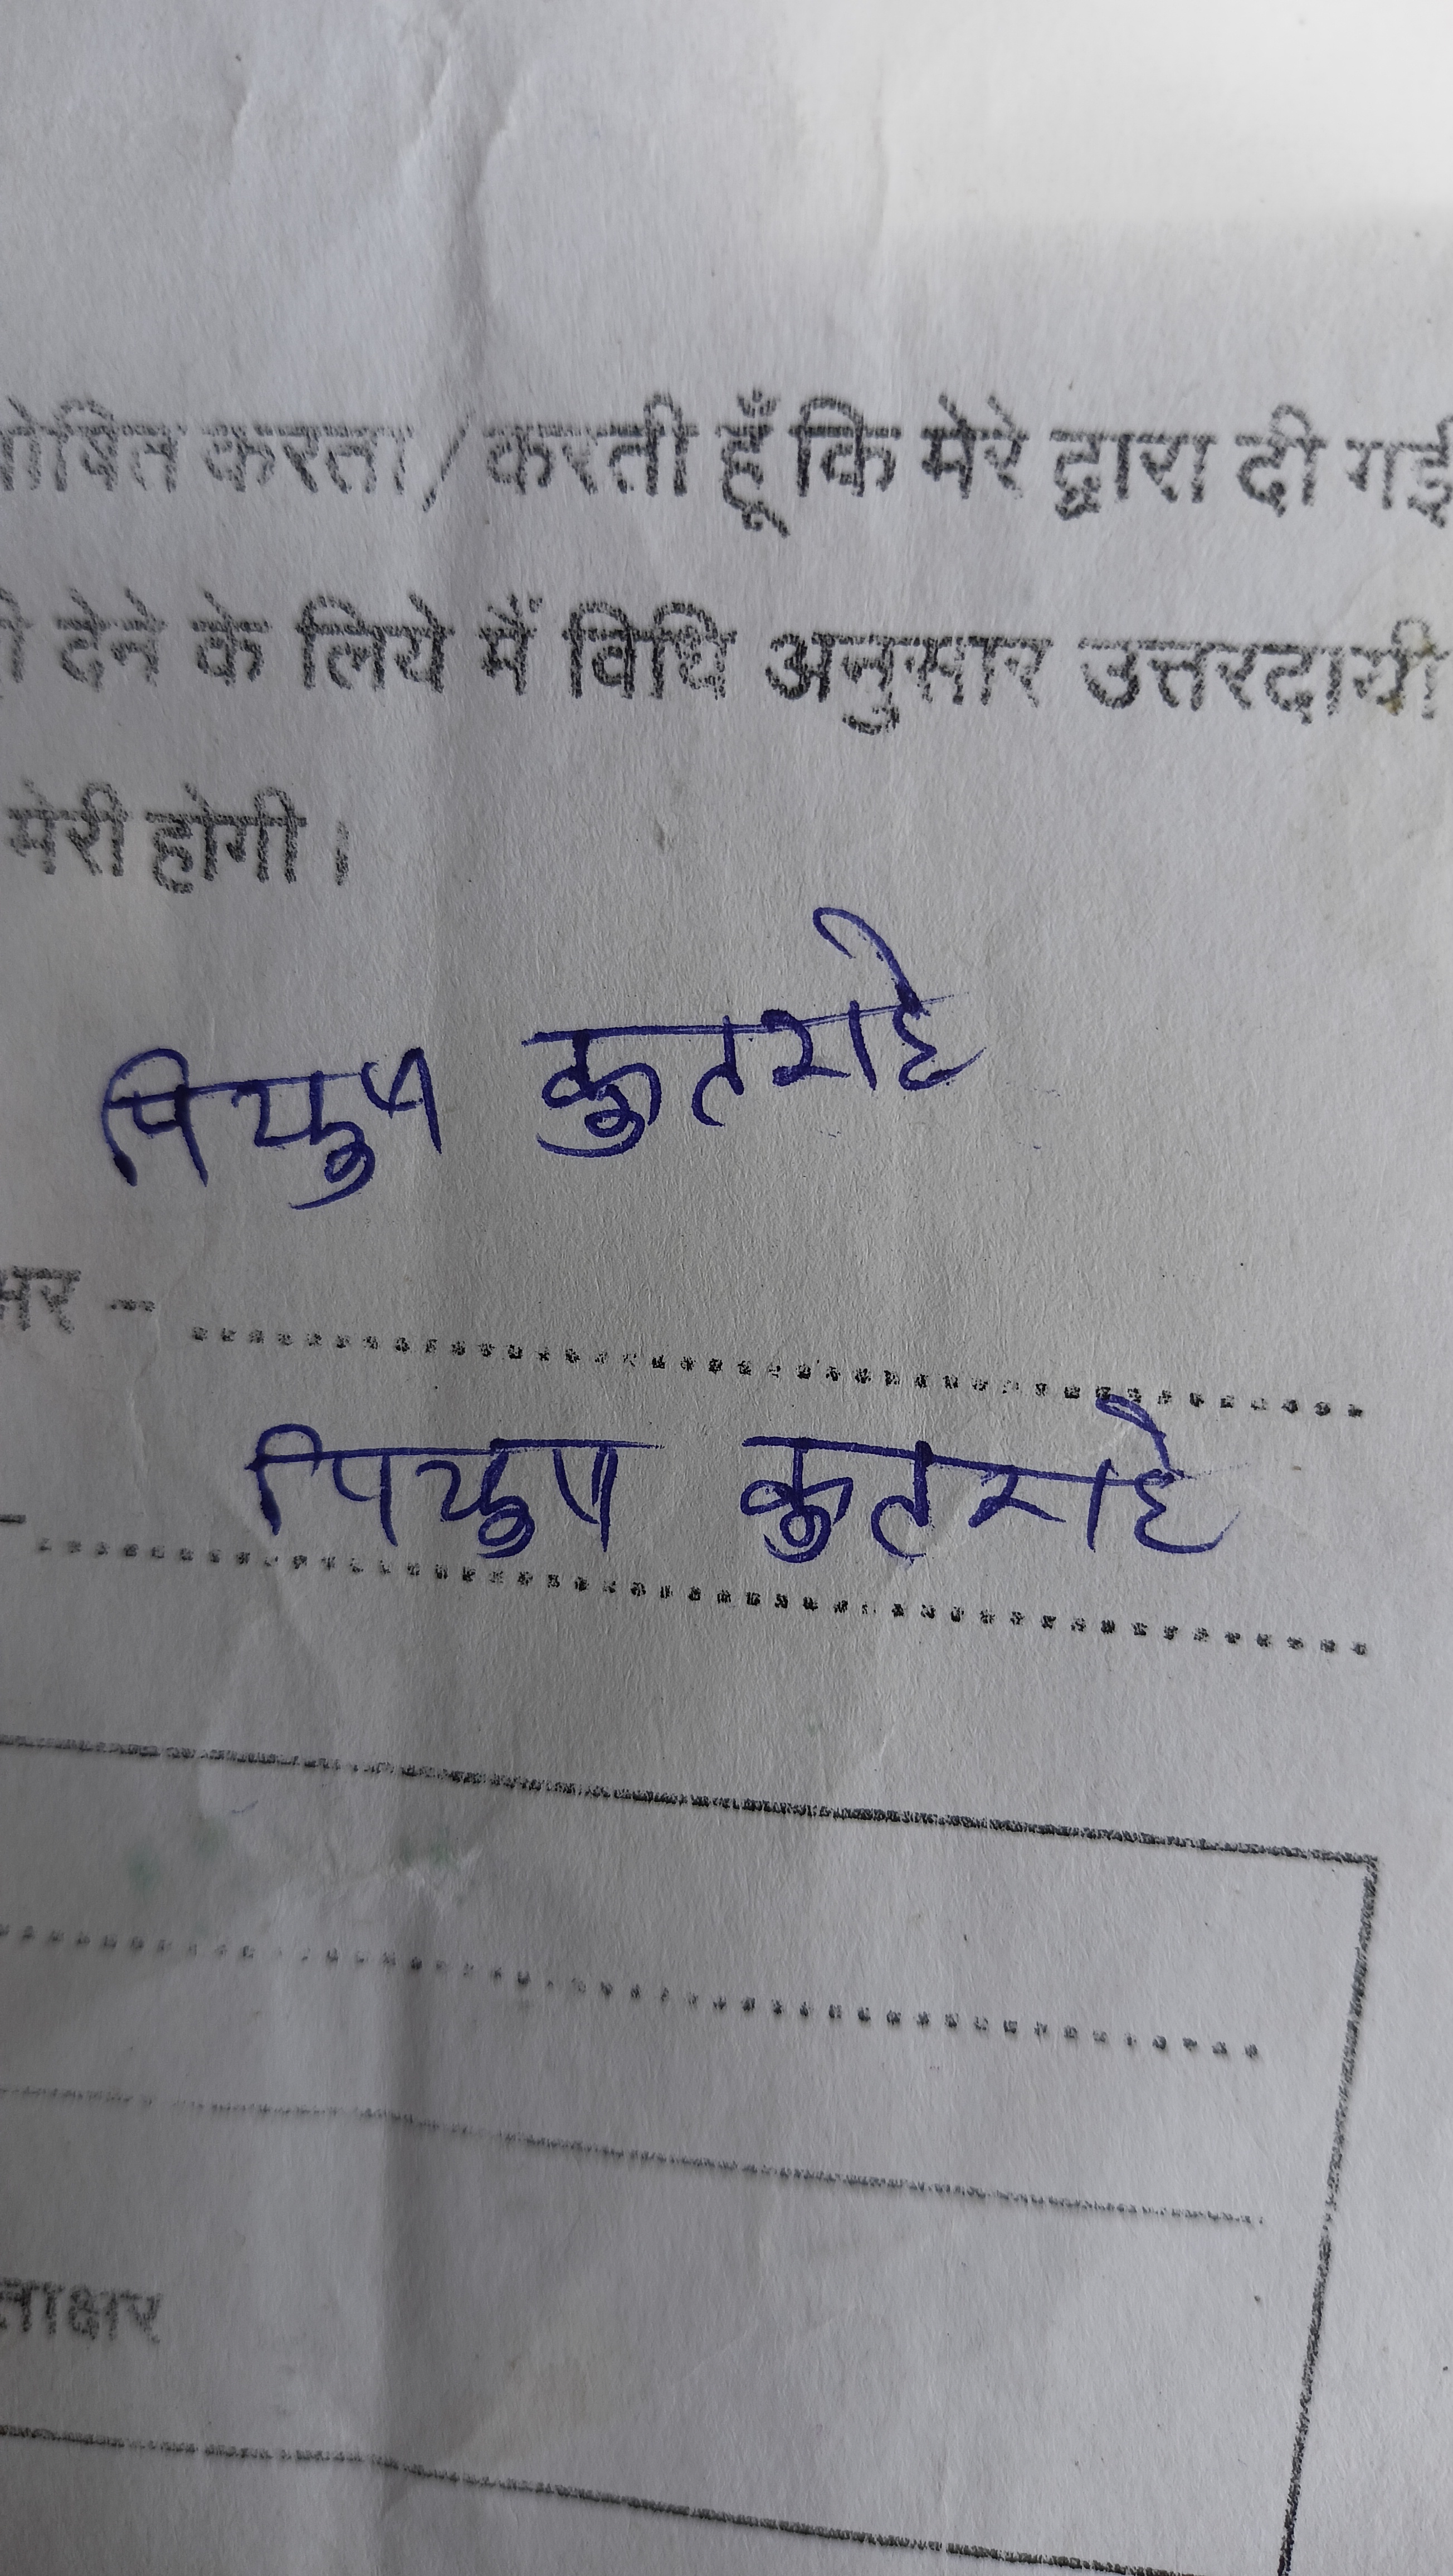 घोषित करता / करती हूँ कि मेरे द्वारा दी गई
देने के लिये मैं विधि अनुसार उत्तरदायी
मेरी होगी।
पियुष कुतराहे
क्षर - ........................................
पियुष कुतराहे
-........................................
ताक्षर